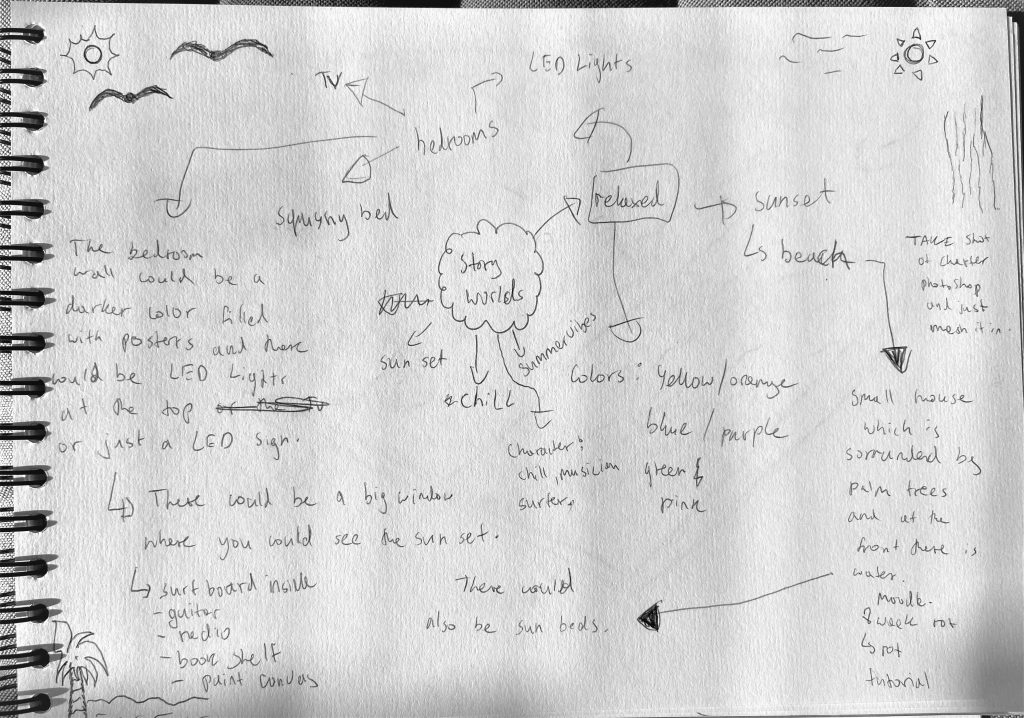 TV
LED Lights
bedrooms
squyny bed
relaxed
sunset
↳ beach
Story
worlds
sun set
chill
summer vibes
Character:
chill, musician
surfer.
Colors: Yellow/orange
blue/purple
green &
pink
The bedroom
wall would be a
darker color filled
with posters and there
would be LED Lights
at the top
or just a LED sign.
↳ There would be a big window
where you could see the sun set.
↳ surfboard inside
- guitar
- radio
- book shelf
- paint canvas
TAKE shot
of
photoshop
and just
it in.
small house
which is
sorrunded by
palm trees
and at the
front there is
water.
tutorial
There would
also be sun beds.